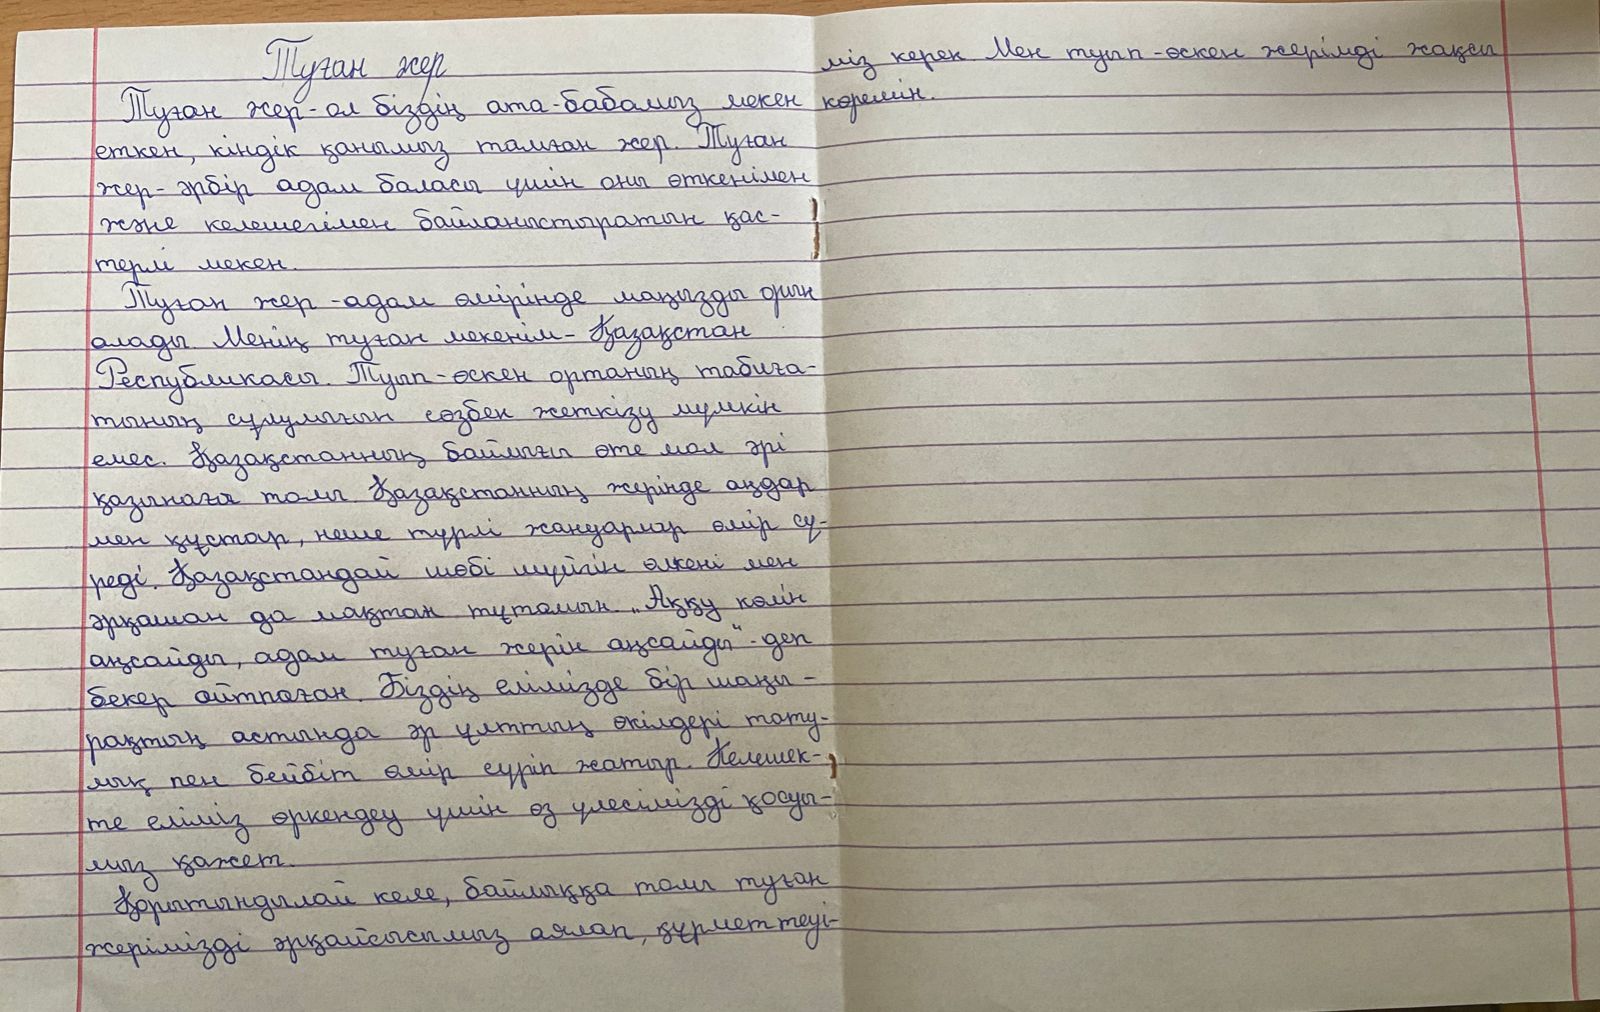 Туған жер
Туған жер-ол біздің ата-бабамыз мекен
еткен, кіндік қанымыз тамған жер. Туған
жер- әрбір адам баласы үшін оны өткенімен
және келешегімен байланыстыратын қас-
терлі мекен.
Туған жер -адам өмірінде маңызды орын
алады. Менің туған мекенім- Қазақстан
Республикасы. Туып-өскен ортаның табиға-
тының сұлулығын сөзбен жеткізу мүмкін
емес. Қазақстанның байлығы өте мол әрі
қазынаға толы. Қазақстанның жерінде аңдар
мен құстар, неше түрлі жануарлар өмір сү-
реді. Қазақстандай шөбі шүйгін өлкені мен
әрқашан да мақтан тұтамын. „Аққу көлін
аңсайды, адам туған жерін аңсайды"-деп
бекер айтпаған. Біздің елімізде бір шаңы-
рақтың астында әр ұлттың өкілдері тату-
лық пен бейбіт өмір сүріп жатыр. Келешек-
те еліміз өркендеу үшін өз үлесімізді қосуы-
мыз қажет.
Қорытындылай келе, байлыққа толы туған
жерімізді әрқайсысымыз аялап, құрметтеуі-
міз керек. Мен туып-өскен жерімді жақсы
көремін.